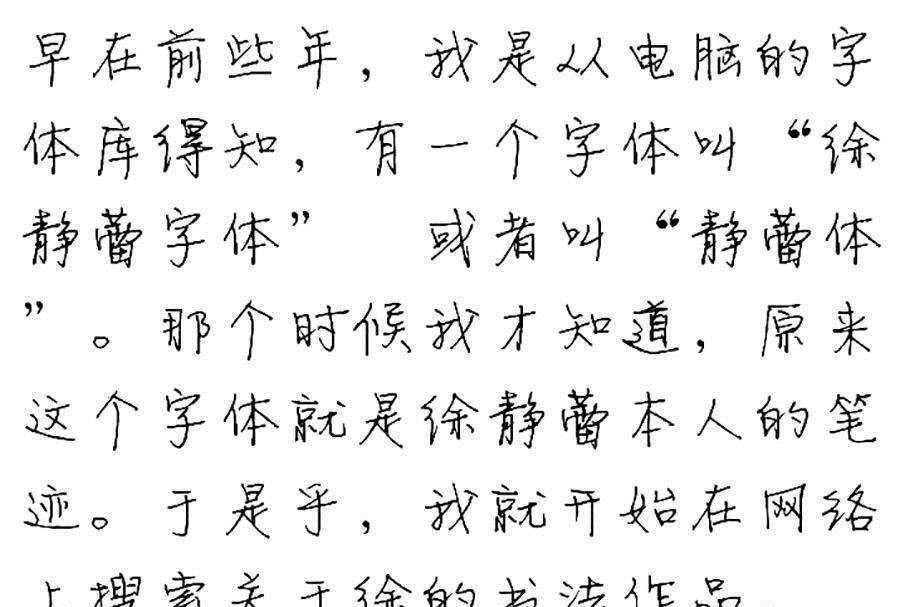 早在前些年，我是从电脑的字
体库得知，有一个字体叫“徐
静蕾字体” 或者叫“静蕾体
”。那个时候我才知道，原来
这个字体就是徐静蕾本人的笔
迹。于是乎，我就开始在网络
上搜索关于徐的书法作品。